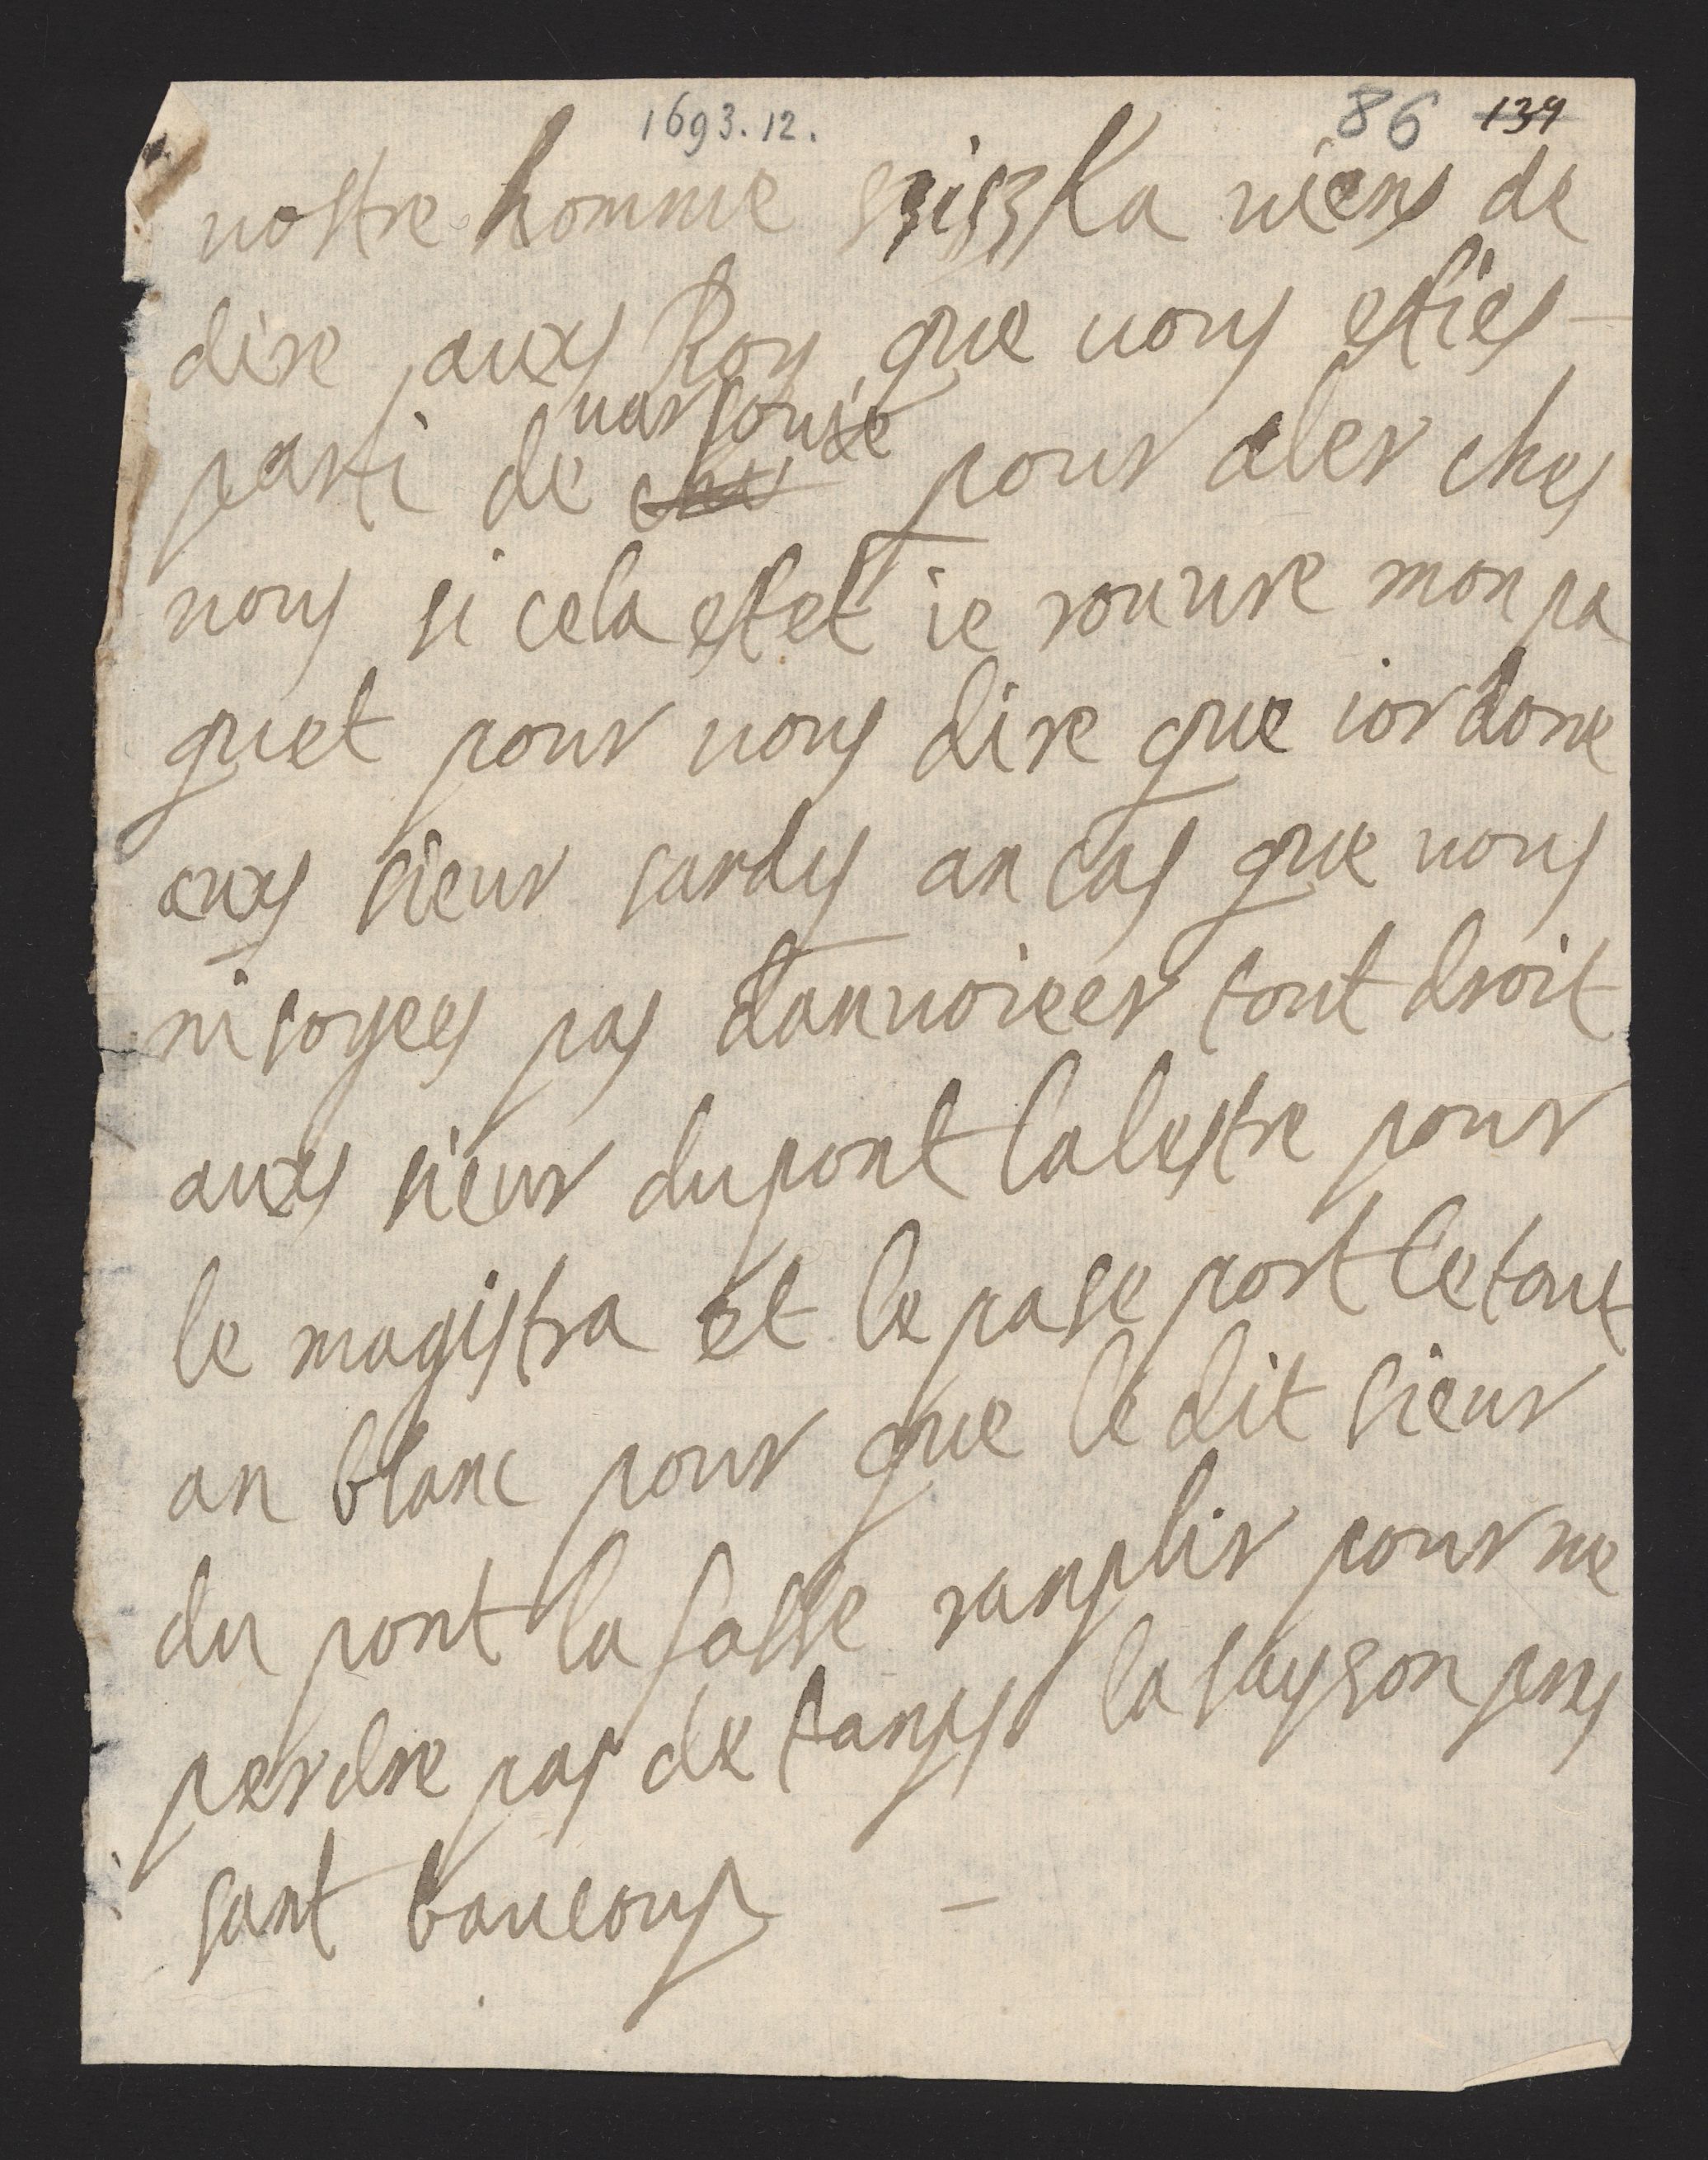 1693.12.
86 139
vostre homme sziszka viens de
dire auxy Roy que vous esties
parti de varsouie pour aler ches
vous si cela estet ie rouvre mon pa
quet pour vous dire que iordone
auxy sieur sardy an cas que vous
ni soyees pas danvoieer tout droit
auxy sieur dupont la lestre pour
le magistra et le pase port le tout
an blanc pour que le dit sieur
du pont la fasse ranplir pour ne
perdre pas de tanps la sayson pres
sant baucoup –